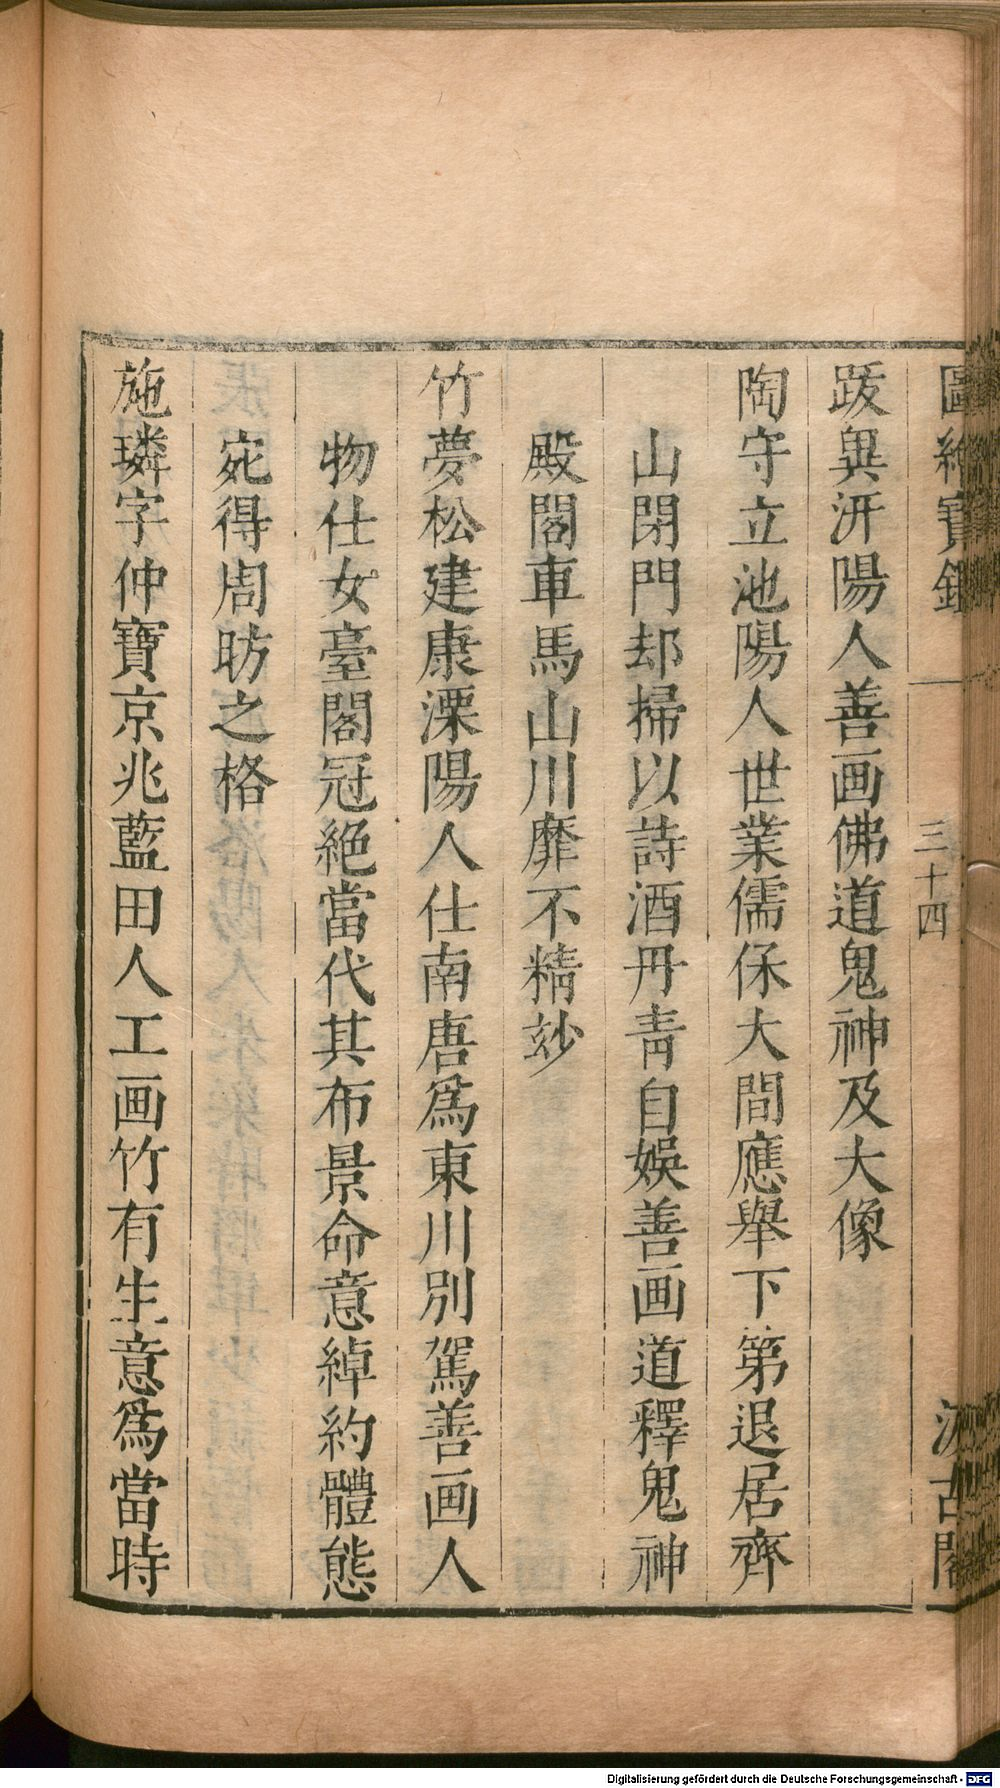 圖繪寶鑑 三十四 汲古閣
跋異汧陽人善画佛道鬼神及大像
陶守立池陽人世業儒保大間應舉下第退居齊
山閉門却掃以詩酒丹青自娛善画道釋鬼神
殿閣車馬山川靡不精玅
竹夢松建康溧陽人仕南唐爲東川別駕善画人
物仕女臺閣冠絶當代其布景命意綽約體態
宛得周昉之格
施璘字仲寶京兆藍田人工画竹有生意爲當時
Digitalisierung gefördert durch die Deutsche Forschungsgemeinschaft - DFG